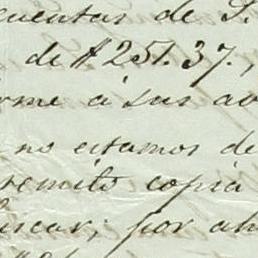 cuentas de S.
de $251.37.,
orme á sus av
no estamos de
remito copia
por ah